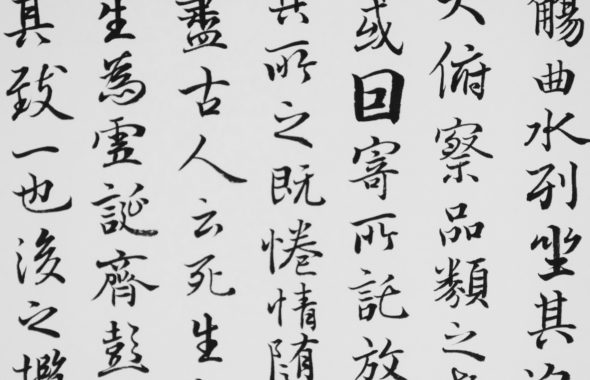 觴曲水列坐其次
大俯察品類之盛
或回寄所託放
其所之既惓情随
盡古人云死生
生為虚誕齊彭
其致一也後之攬